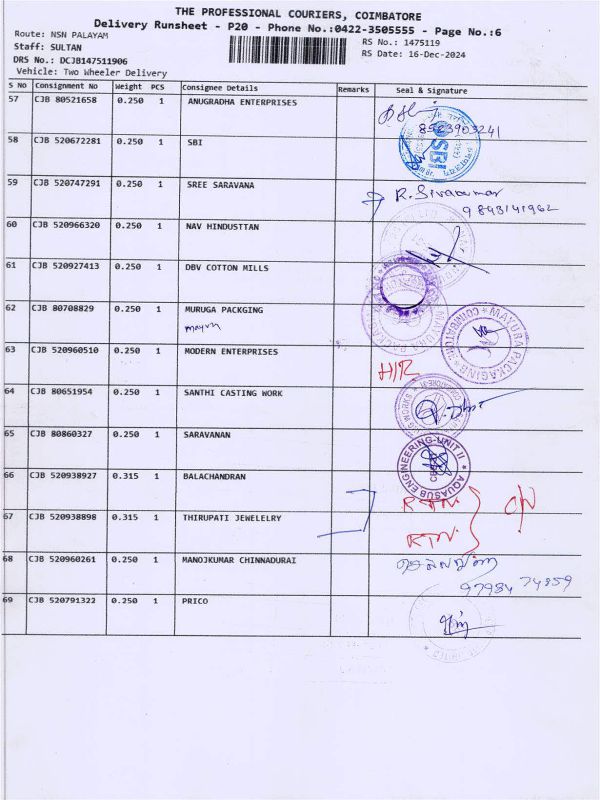 THE PROFESSIONAL COURIERS, COIMBATORE
Delivery Runsheet - P20 - Phone No.:0422-3505555 - Page No.:6
Route: NSN PALAYAM
RS No.: 1475119
Staff: SULTAN
RS Date: 16-Dec-2024
DRS No.: DCJB147511906
Vehicle: Two Wheeler Delivery
S No Consignment No Weight PCS Consignee Details Remarks Seal & Signature
57 CJB 80521658 0.250 1 ANUGRADHA ENTERPRISES
8523903241
58 CJB 520672281 0.250 1 SBI
SBI
59 CJB 520747291 0.250 1 SREE SARAVANA R. Sivakumar
9893141962
60 CJB 520966320 0.250 1 NAV HINDUSTTAN
61 CJB 520927413 0.250 1 DBV COTTON MILLS
62 CJB 80708829 0.250 1 MURUGA PACKGING
mayura
MAYURA PACKAGING COIMBATORE
63 CJB 520960510 0.250 1 MODERN ENTERPRISES H/R
64 CJB 80651954 0.250 1 SANTHI CASTING WORK
65 CJB 80860327 0.250 1 SARAVANAN
AQUASUB ENGINEERING-UNIT II
66 CJB 520938927 0.315 1 BALACHANDRAN RTN.
67 CJB 520938898 0.315 1 THIRUPATI JEWELELRY RTN.
68 CJB 520960261 0.250 1 MANOJKUMAR CHINNADURAI
97984 74859
69 CJB 520791322 0.250 1 PRICO